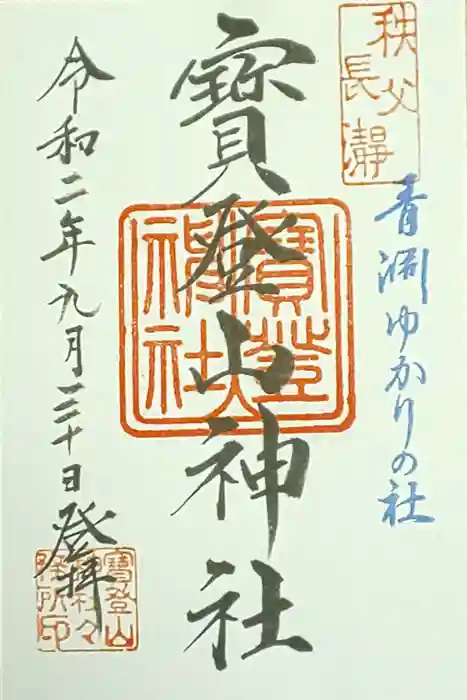 秩父
長瀞
青淵ゆかりの社
寳登山神社
寳登山
神社
令和二年九月三十日登拝
寳登山
神社々
務所印